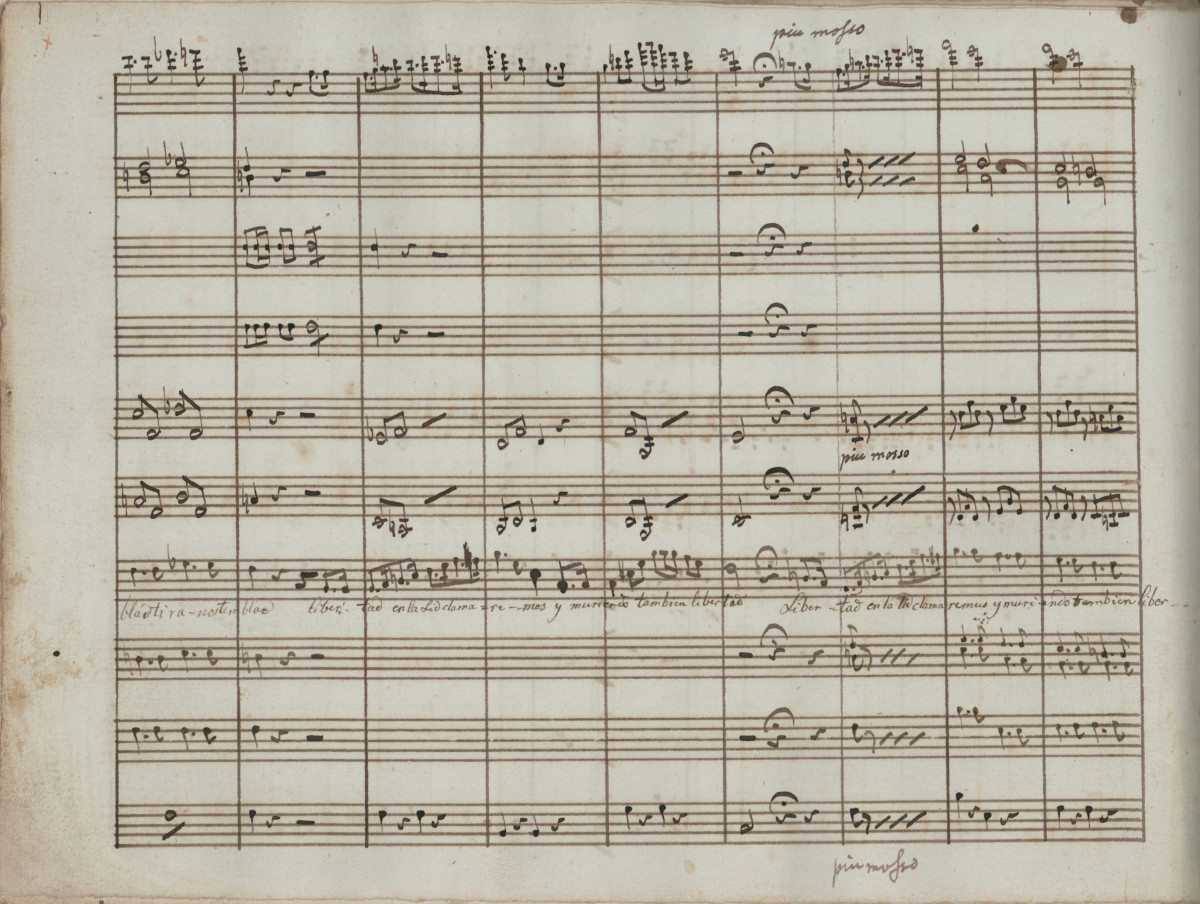 piu mosso
piu mosso
tira-nos tembla liber-tad en la Lid clama=re--mos y muriendo tambien libertad Liber-tad en la lid clamaremus y muriendo tambien liber--
piu mosso